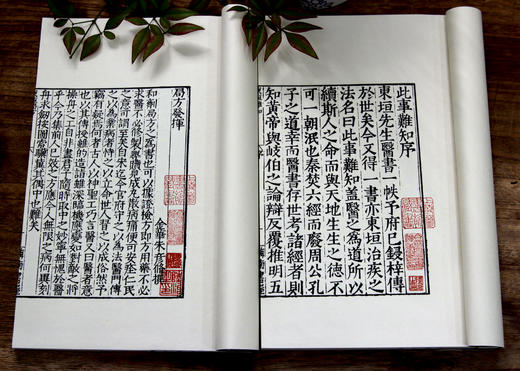 此事難知序
東垣先生醫書一帙予府已鋟梓傳
於世矣今又得一書亦東垣治疾之
法名曰此事難知蓋醫之為道所以
續斯人之命而與天地生生之德不
可一朝泯也秦焚六經而廢周公孔
子之道幸而醫書存世考諸經者則
知黃帝與岐伯之論辯反覆推明五
局方發揮
金華朱彥脩撰
和劑局方之為書也可以據證檢方即方用藥不必
求醫不必修製尋贖見成丸散病痛便可安痊仁民
之意可謂至矣自宋迄今官府守之以為法醫門傳
之以為業病者恃之以立命世人習之以成俗然予
竊有疑焉何者古人以神聖工巧言醫又曰醫者意
也以其傳授雖的造詣雖深臨機應變如對敵之將
操舟之工自非盡君子隨時反中之妙寧無愧於醫
乎今乃集前人已效之方應今人無限之病何異刻
舟求劍按圖索驥冀其偶中也難矣